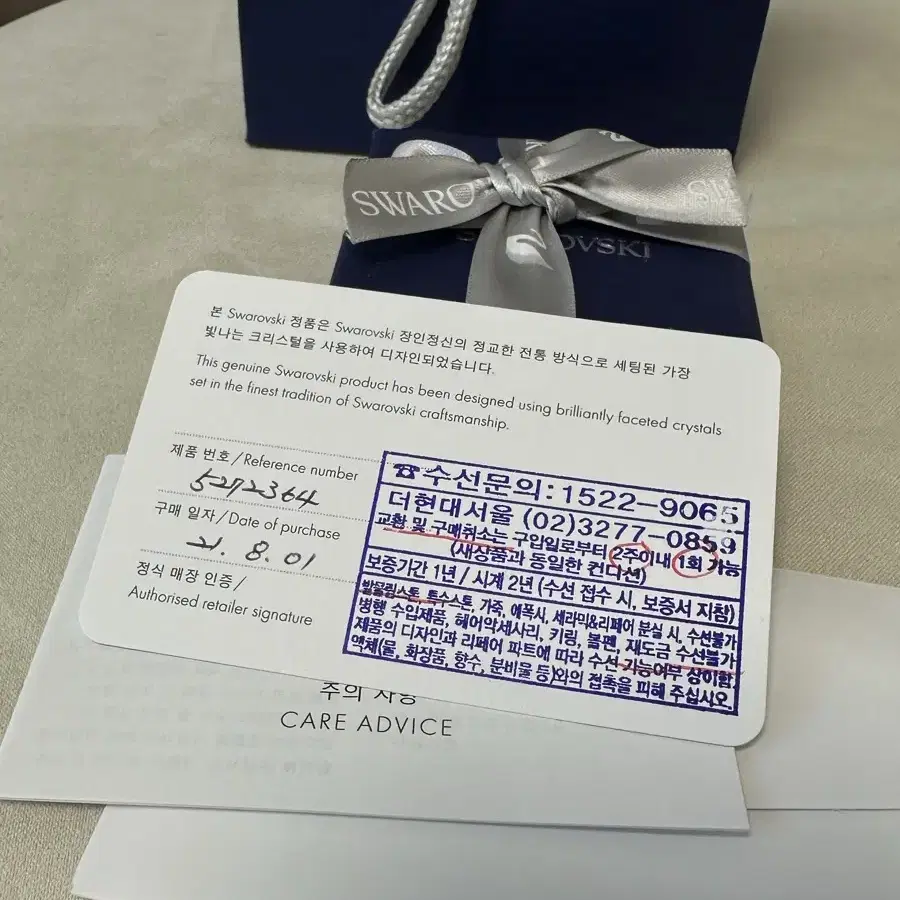 SWARO
OVSKI
본 Swarovski 정품은 Swarovski 장인정신의 정교한 전통 방식으로 세팅된 가장
빛나는 크리스털을 사용하여 디자인되었습니다.
This genuine Swarovski product has been designed using brilliantly faceted crystals
set in the finest tradition of Swarovski craftsmanship.
제품 번호 / Reference number
5272364
구매 일자 / Date of purchase
21. 8. 01
정식 매장 인증 /
Authorised retailer signature
☎수선문의:1522-9065
더현대서울 (02)3277-0859
교환 및 구매취소는 구입일로부터 2주이내 1회 가능
(새상품과 동일한 컨디션)
보증기간 1년 / 시계 2년 (수선 접수 시, 보증서 지참)
발물림스톤, 특수스톤, 가죽, 에폭시, 세라믹&리페어 분실 시, 수선불가
병행 수입제품, 헤어악세사리, 키링, 볼펜, 재도금 수선불가
제품의 디자인과 리페어 파트에 따라 수선 가능여부 상이함
액체(물, 화장품, 향수, 분비물 등)와의 접촉을 피해 주십시오
주의 사항
CARE ADVICE